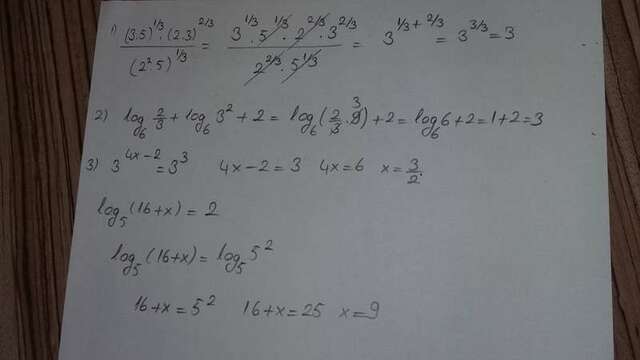 1) (3·5)^1/3 · (2·3)^2/3 / (2²·5)^1/3 = 3^1/3 · 5^1/3 · 2^2/3 · 3^2/3 / 2^2/3 · 5^1/3 = 3^1/3+2/3 = 3^3/3 = 3
2) log₆ 2/3 + log₆ 3² + 2 = log₆ (2/3 · 9 3) + 2 = log₆ 6 + 2 = 1 + 2 = 3
3) 3^4x-2 = 3³ 4x-2 = 3 4x = 6 x = 3/2
log₅ (16+x) = 2
log₅ (16+x) = log₅ 5²
16+x = 5² 16+x = 25 x = 9